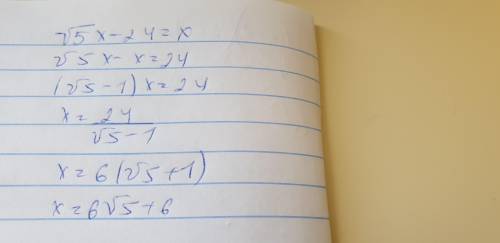 √5 x - 24 = x
√5 x - x = 24
(√5 - 1) x = 24
x = 24
√5 - 1
x = 6 (√5 + 1)
x = 6√5 + 6